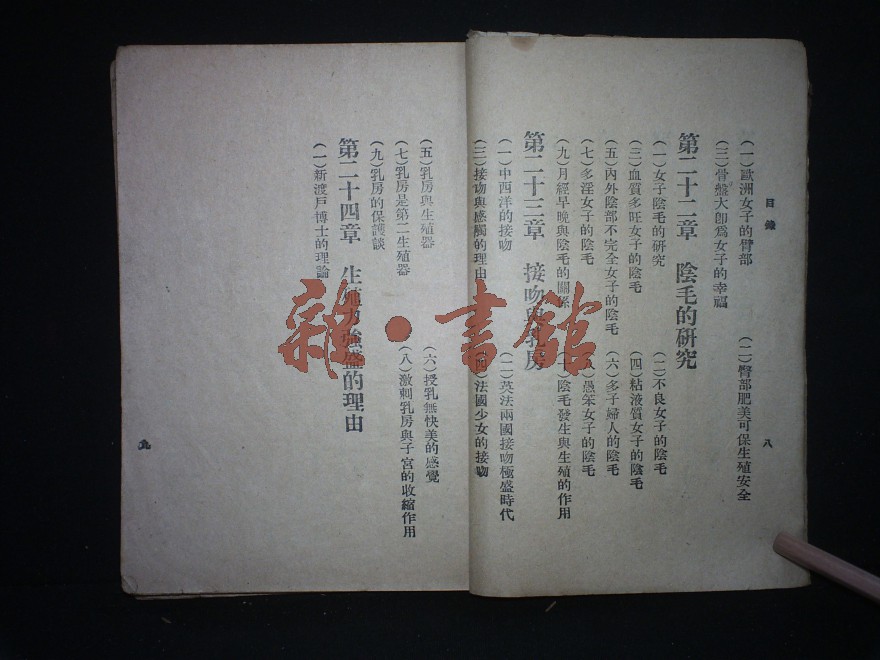 目錄
八
(一)歐洲女子的臀部
(二)臀部肥美可保生殖安全
(三)骨盤大卽爲女子的幸福
第二十二章 陰毛的研究
(一)女子陰毛的研究
(二)不良女子的陰毛
(三)血質多旺女子的陰毛
(四)粘液質女子的陰毛
(五)內外陰部不完全女子的陰毛
(六)多子婦人的陰毛
(七)多淫女子的陰毛
(八)愚笨女子的陰毛
(九)月經早晚與陰毛的關係
(十)陰毛發生與生殖的作用
第二十三章 接吻與乳房
(一)中西洋的接吻
(二)英法兩國接吻極盛時代
(三)接吻與感觸的理由
(四)法國少女的接吻
(五)乳房與生殖器
(六)授乳無快美的感覺
(七)乳房是第二生殖器
(八)激刺乳房與子宮的收縮作用
(九)乳房的保護談
第二十四章 生殖力強盛的理由
(一)新渡戶博士的理論
九
雜·書館